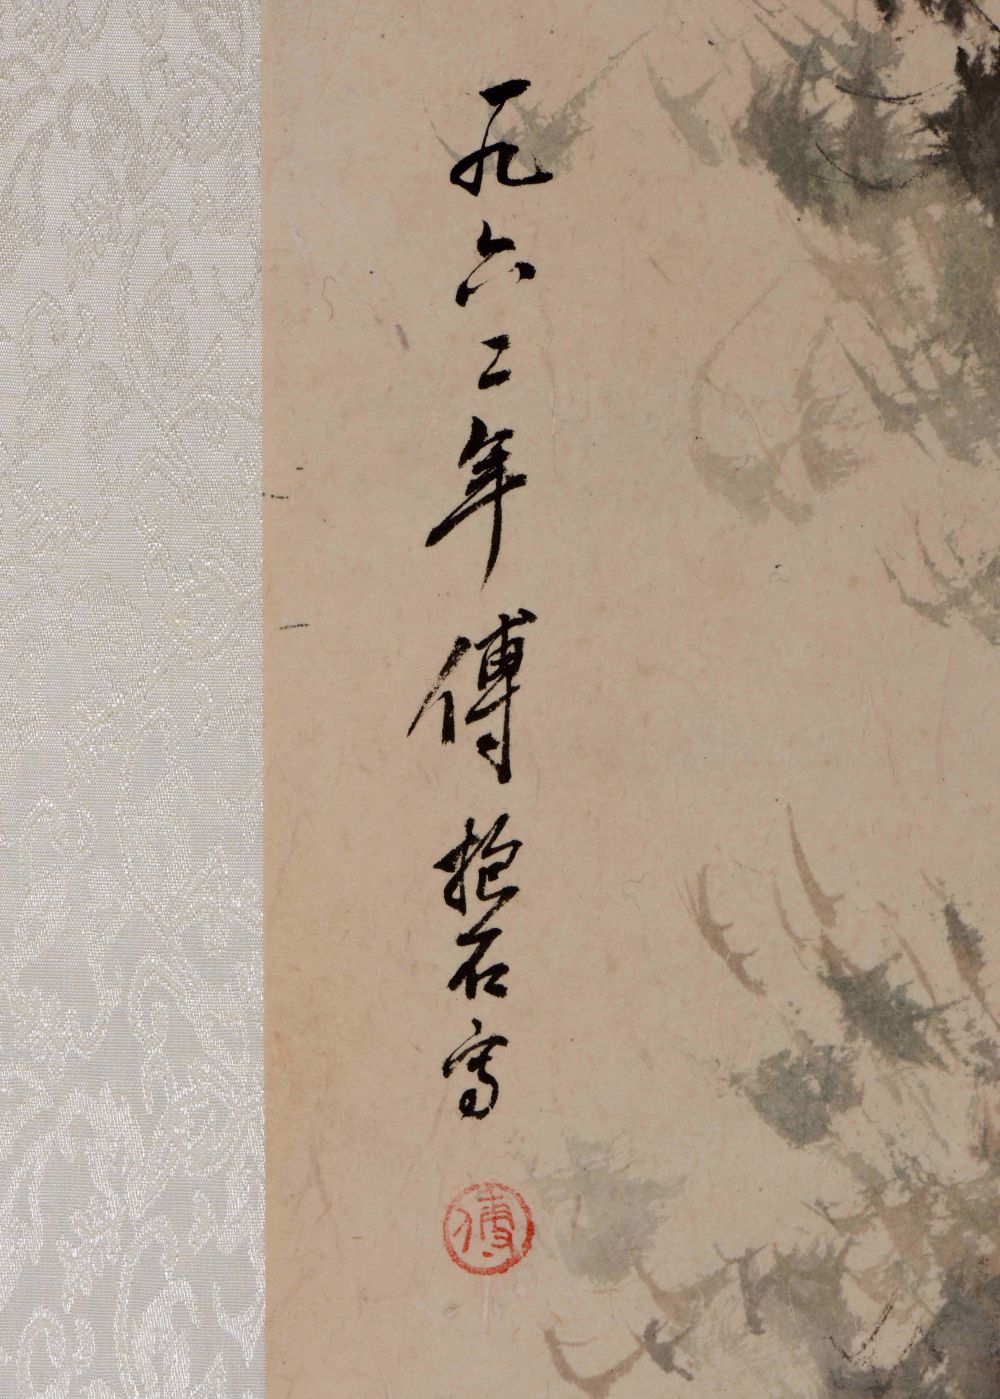 一九六二年傅抱石寫
傅